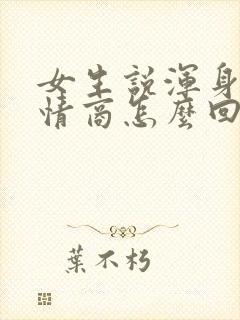 女生說渾身
情商怎麼回
葉不朽